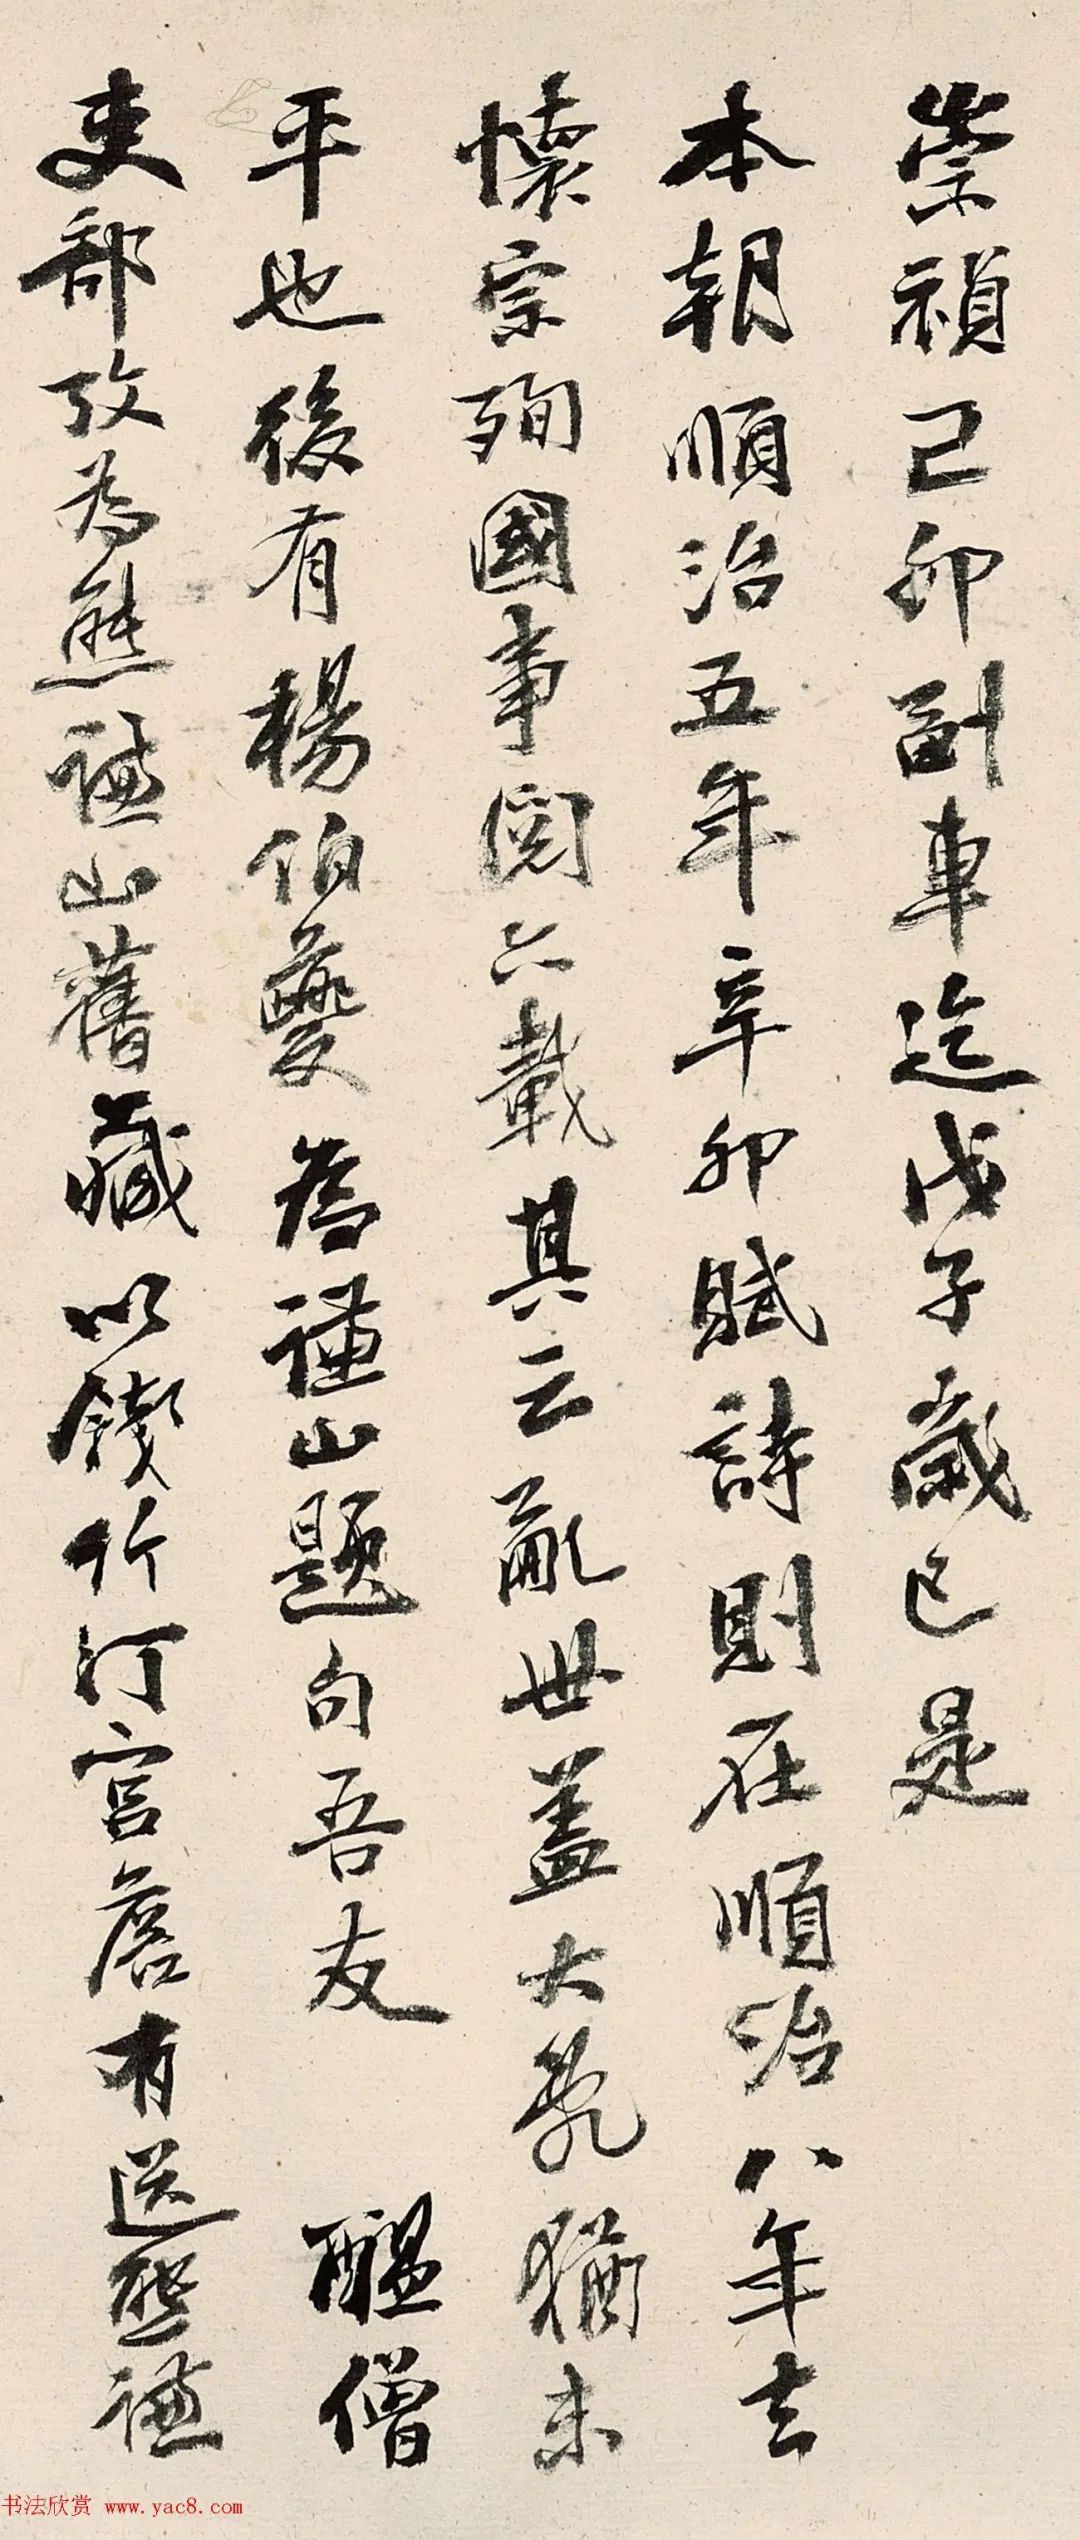 崇禎己卯副車迄戊子歲已是
本朝順治五年辛卯賦詩則在順治八年去
懷宗殉國事閱六載其云亂世蓋大亂猶未
平也後有楊伯夔為謹山題句吾友醖僧
吏部攷為熊謙山舊藏以錢竹汀宮詹有送熊謙
书法欣赏 www.yac8.com